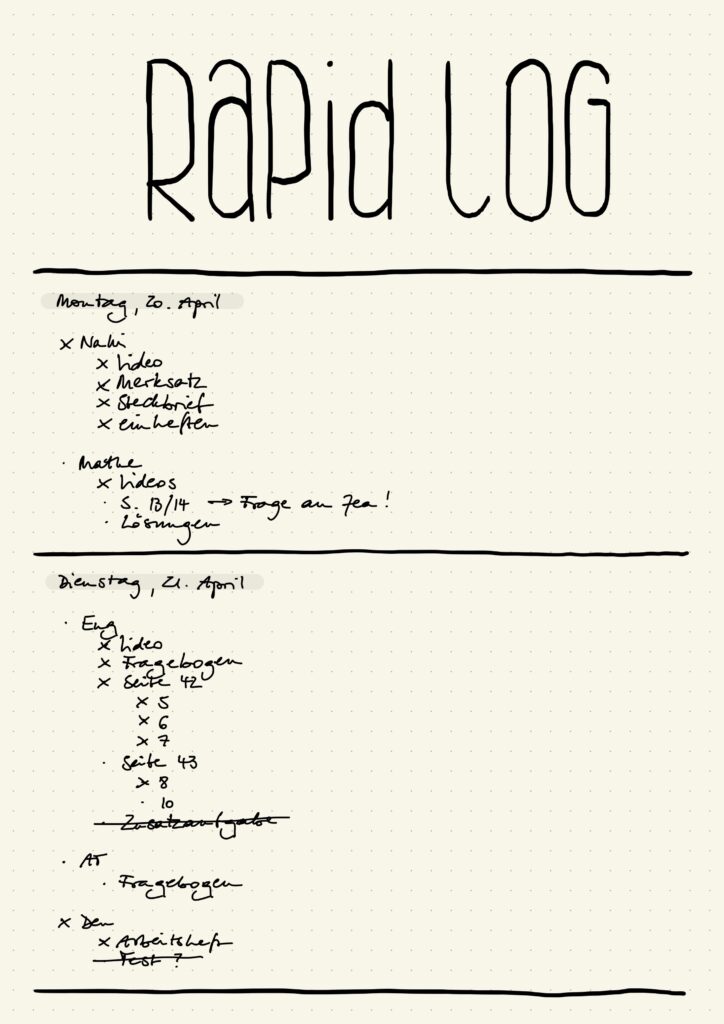 Rapid LOG
Montag, 20. April
x Nawi
x Video
x Merksatz
x Steckbrief
x einheften
· Mathe
x Videos
· S. 13/14 → Frage an Fea!
· Lösungen
Dienstag, 21. April
· Eng
x Video
x Fragebogen
x Seite 42
x 5
x 6
x 7
· Seite 43
x 8
· 10
· Zusatzaufgabe
· AT
· Fragebogen
x Deu
x Arbeitsheft
· Test ?